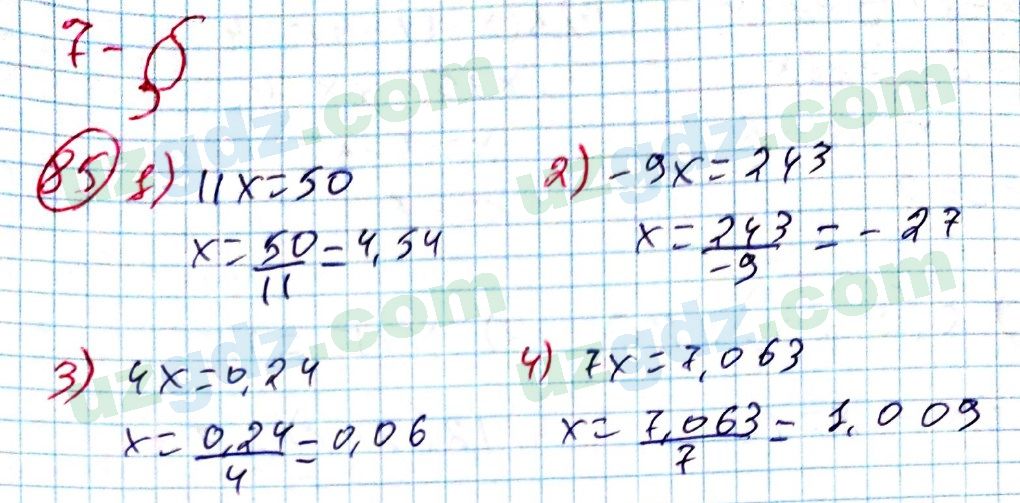 7-§
85 1) 11x=50
x=50/11=4,54
2) -9x=243
x=243/-9=-27
3) 4x=0,24
x=0,24/4=0,06
4) 7x=7,063
x=7,063/7=1,009
uzgdz.com
uzgdz.com
uzgdz.com
uzgdz.com